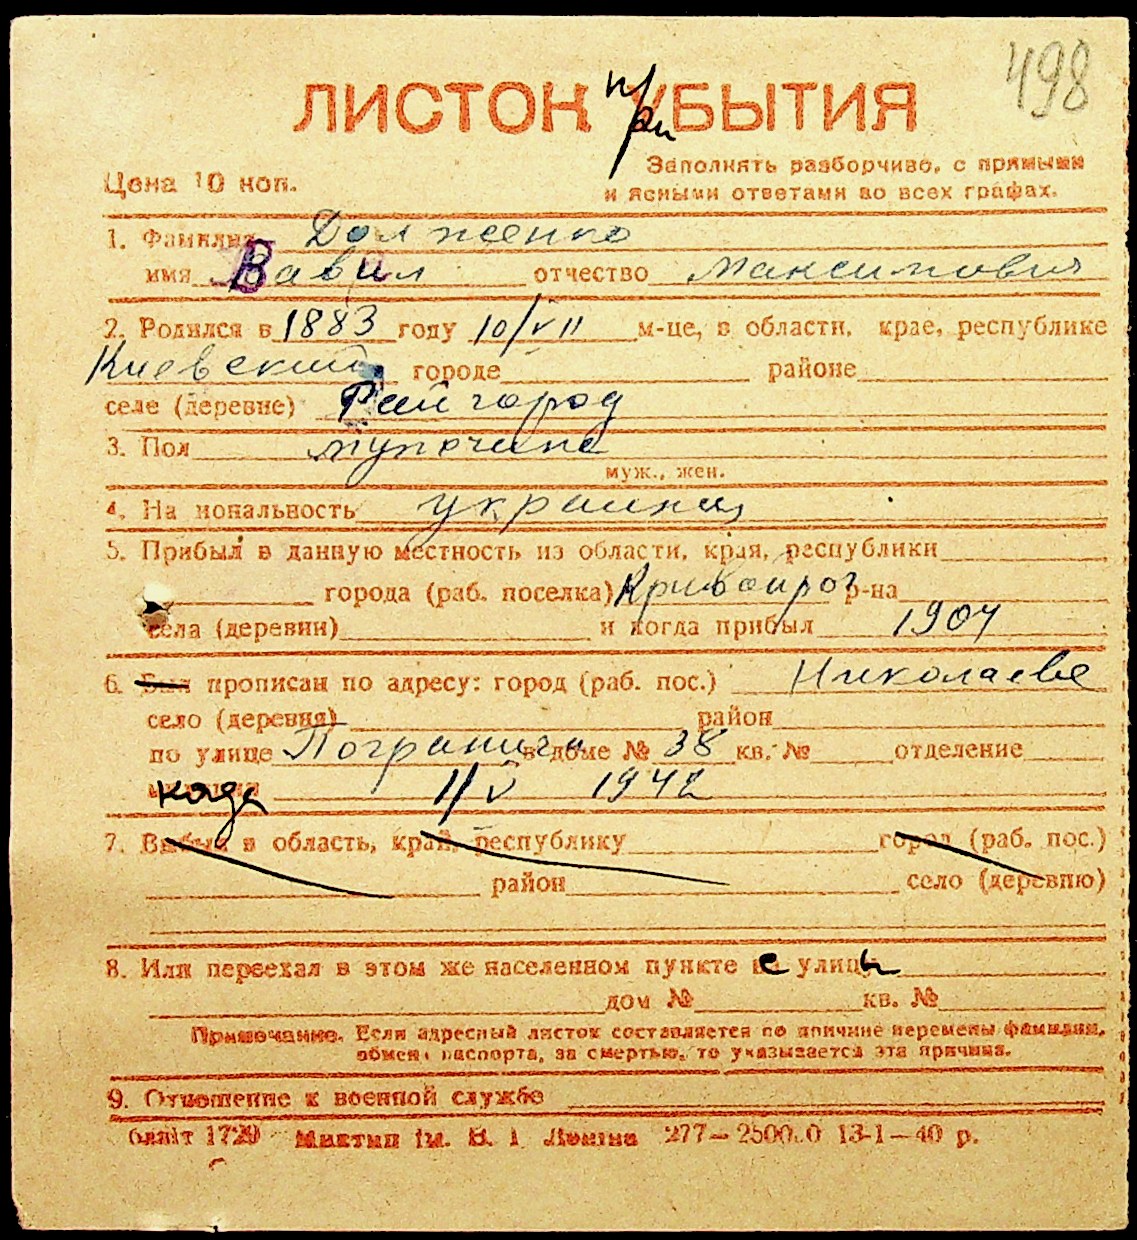 498
ЛИСТОК прибытия
Цена 10 коп.
Заполнять разборчиво, с прямыми
и ясными ответами во всех графах.
1. Фамилия Долженко
имя Вавил отчество Максимович
2. Родился в 1883 году 10/VII м-це, в области, крае, республике
Киевский городе районе
селе (деревне) Райгород
3. Пол мужчина
муж., жен.
4. На иональность украинец
5. Прибыл в данную местность из области, края, республики
города (раб. поселка) Кривойрог р-на
села (деревни) и когда прибыл 1904
6. Был прописан по адресу: город (раб. пос.) Николаеве
село (деревня) район
по улице Погранична в доме № 38 кв. № отделение
когда 1/V 1942
7. Выбыл в область, край, республику город (раб. пос.)
район село (деревню)
8. Или переехал в этом же населенном пункте с улицы
дом № кв. №
Примечание. Если адресный листок составляется по причине перемены фамилии,
обмен паспорта, за смертью, то указывается эта причина.
9. Отношение к военной службе
1729 Миктип ім. В. І Леніна 277—2500.0 13-1—40 р.